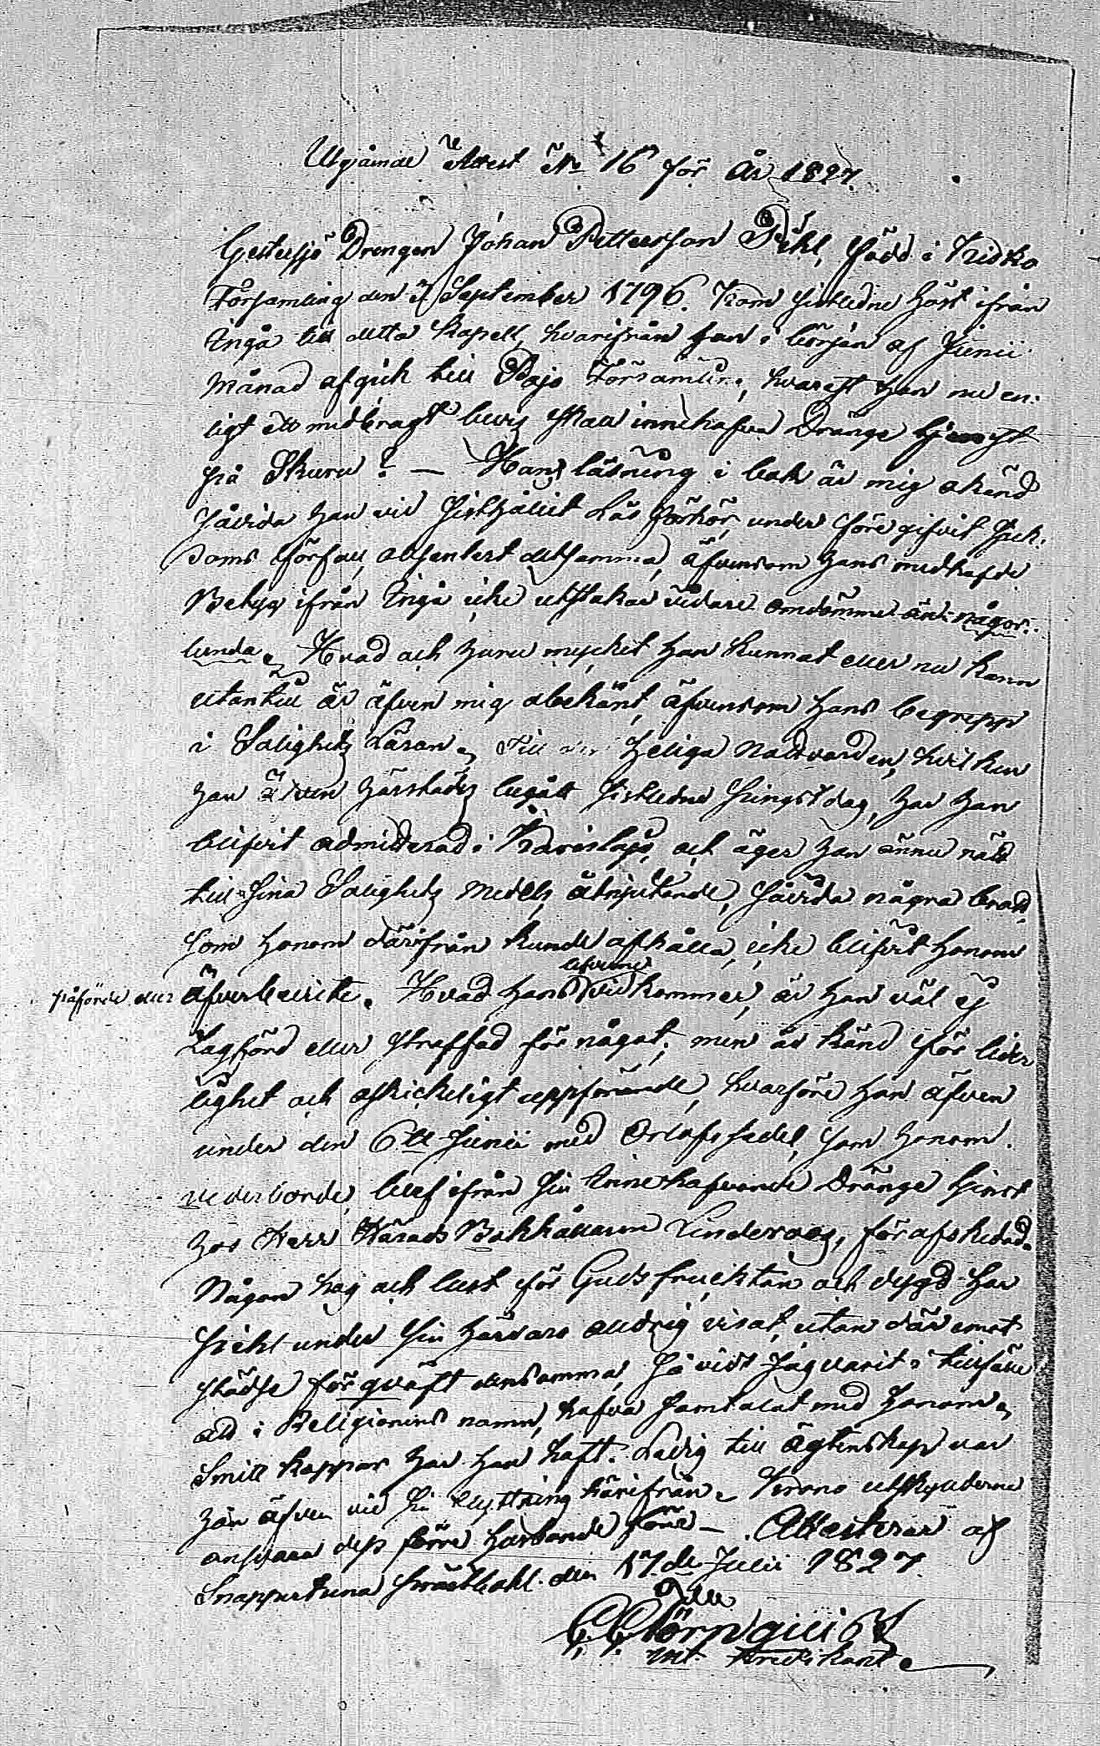 Utgående Attest No 16 för År 1827.
Gesteesjö Drengen Johan Pettersson Pihl, född i Kisko
Församling den 4 September 1796. Kom sistledne Höst ifrån
Ingå till detta Kapell, hvarifrån han i början af Junii
Månad afgick till Pojo Församling, hvarest han nu en-
ligt ett medbragt bevis skall innehafva Drängs tjenst
på Skuru? — Hans läsning i bok är mig okänd
såvida han vid sisthållit Läs förhör, under föregifvit sjuk-
doms förfall, absentert detsamma, äfvensom hans medhafde
Betyg ifrån Ingå icke utstakar vidare omdömme än någor-
lunda. Hvad och huru mycket han kunnat eller nu kann
utantill är äfven mig obekänt, äfvensom hans begrepp
i Salighets Läran. Till den Heliga Nattvarden, hvilken
han även härstädes begått sistledne Pingstdag, har han
blifvit admitterad i Karislojo, och äger han ännu rätt
till sina Salighets Medels åtnjutande, såvida några brott
som honom därifrån kunde afhålla, icke blifvit honom
påförde eller öfverbeviste. Hvad hans lefverne vidkommer, är han väl ej
Lagförd eller straffad för något; men är känd för lider-
lighet och oskickeligt uppförande, hvarföre han äfven
under den 6te Junii med Orlofssedel, som honom
vederborde, blef ifrån sin innehafvande Drängs tjenst
hos Herr Härads Bokhållaren Linderoos, förafskedad.
Någon håg och lust för Gudsfruktan och dygd har
Pihl under sin härvaro aldrig visat, utan däremot
städse förqväft densamma så vidt jag varit i tillfälle
att i Religionens namn, hafva samtalat med honom.
Smitt koppor har han haft. Ledig till ägtenskap var
han äfven vid sin flyttning härifrån. Krono utskylderne
ansvara dess förre husbonde före —. Attesterar af
Snappertuna Prästbohl. den 17de Julii 1827.
C. G. Törnqvist
Pred